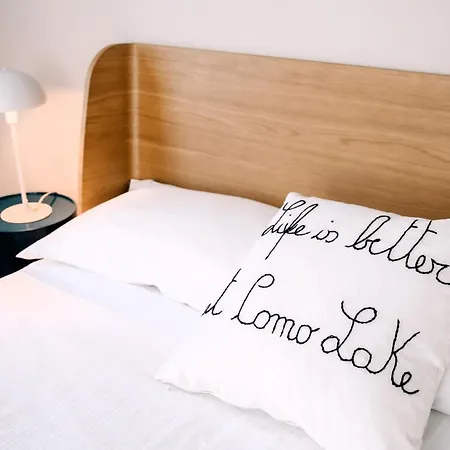 Life is better
at Como Lake